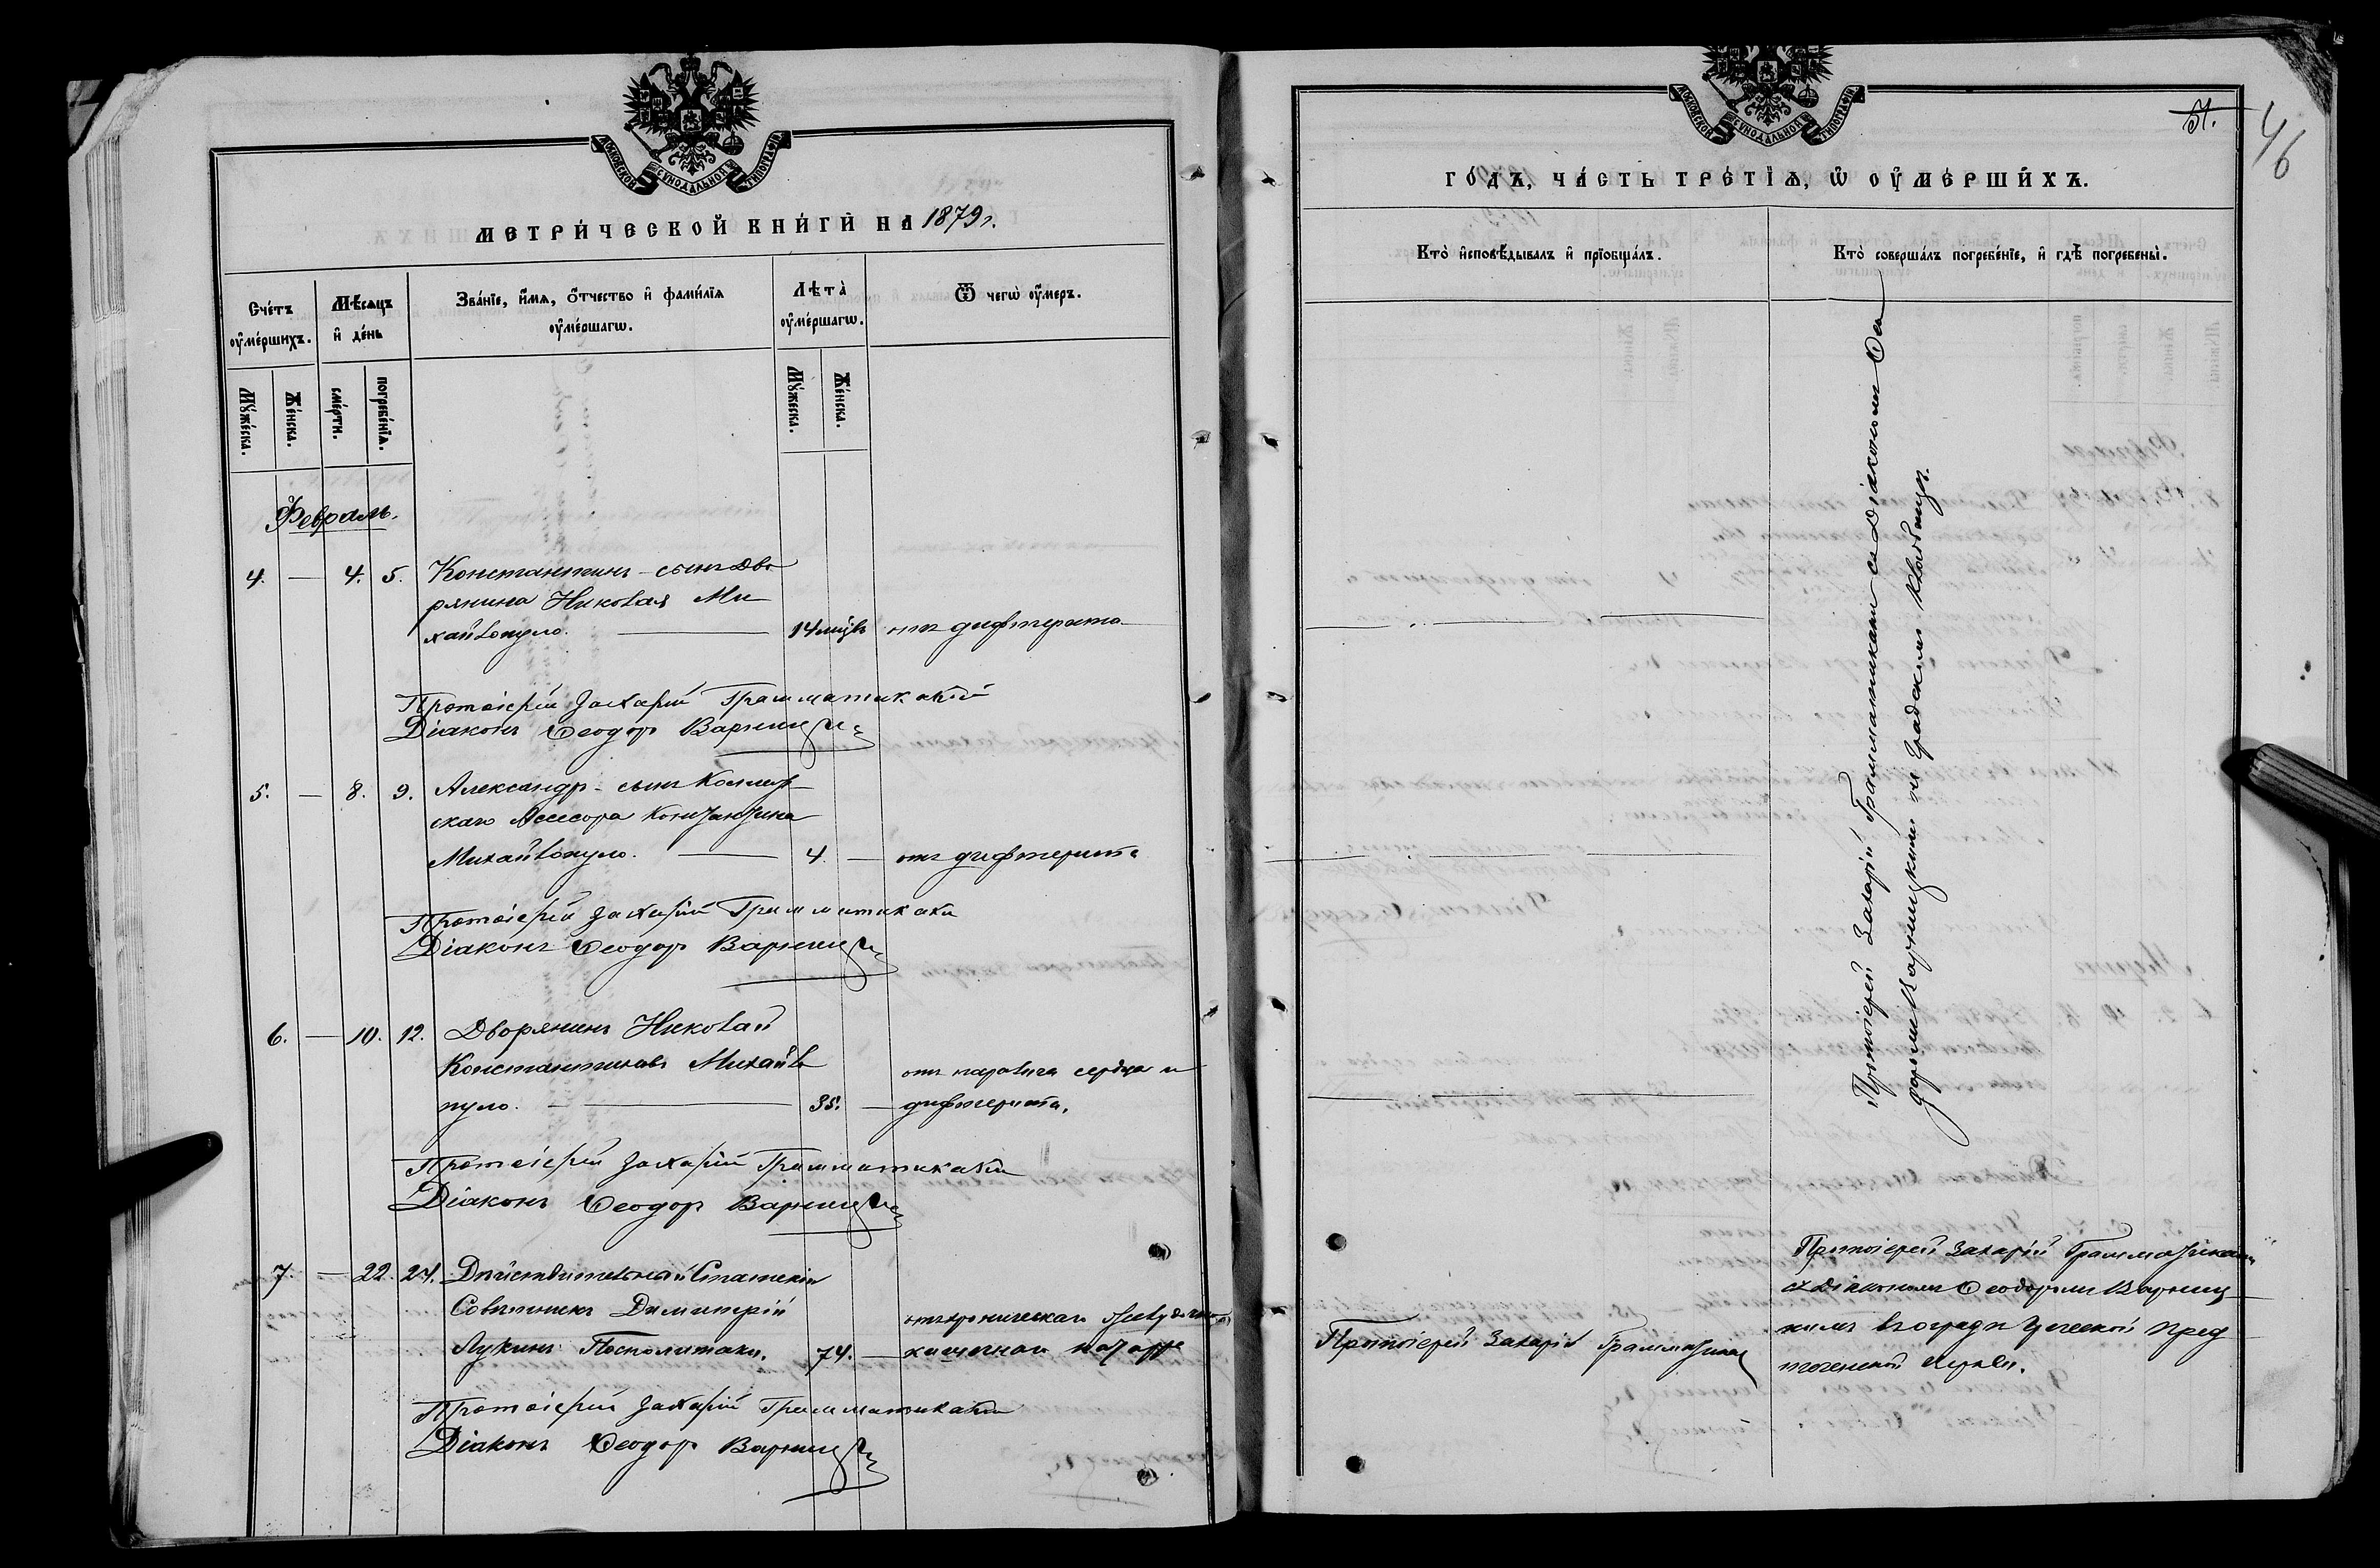 МОСКОВСКОЙ СУНОДАЛЬНОЙ ТИПОГРАФІИ
МЕТРИ́ЧЕСКОЙ КНИ́ГИ НА 1879 г.
Сче́тъ оу҆ме́ршихъ.
Мѣ́сяцъ и҆ де́нь
Зва́нїе, и҆́мѧ, ѻ҆́тчество и҆ фами́лїѧ оу҆ме́ршагѡ.
Лѣ́та̀ оу҆ме́ршагѡ.
Ѿ чегѡ̀ оу҆́меръ.
Мꙋ́жеска.
Же́нска.
сме́рти.
погребе́нїѧ.
Мꙋ́жеска.
Же́нска.
Февраль.
4. — 4. 5. Константинъ - сынъ Дво
рянина Николая Ми
хайлопуло. — 14 мцвъ отъ дифтерита
Протоіерей Захарій Грамматикаки
Діаконъ Ѳеодоръ Варницкій
5. — 8. 9. Александръ - сынъ Коллеж
скаго Ассесора Константина
Михайлопуло. — 4. — отъ дифтерита
Протоіерей Захарій Грамматикаки
Діаконъ Ѳеодоръ Варницкій
6. — 10. 12. Дворянинъ Николай
Константиновъ Михайло
пуло. — 35. — отъ паралича сердца и
дифтерита.
Протоіерей Захарій Грамматикаки
Діаконъ Ѳеодоръ Варницкій
7. — 22. 24. Дѣйствительный Статскій
Совѣтникъ Димитрій
Лукинъ Посполитаки. 74. — отъ хроническаго
кишечнаго катарра
Протоіерей Захарій Грамматикаки
Діаконъ Ѳеодоръ Варницкій
МОСКОВСКОЙ СУНОДАЛЬНОЙ ТИПОГРАФІИ
51.
46
ГО́ДЪ, ЧА́СТЬ ТРЕ́ТЇѦ, Ѡ҆ ОУ҆МЕ́РШИХЪ.
Кто̀ и҆сповѣ́дывалъ и҆ прїобща́лъ.
Кто̀ соверша́лъ погребе́нїе, и҆ гдѣ̀ погребены̀.
Протоіерей Захарій Грамматикаки съ Діакономъ Ѳео
доромъ Варницкимъ на Градскомъ кладбищѣ.
Протоіерей Захарій Грамматикаки
Протоіерей Захарій Грамматикаки
съ Діакономъ Ѳеодоромъ Варниц
кимъ въ оградѣ Греческой Пред
теченской Церкви.